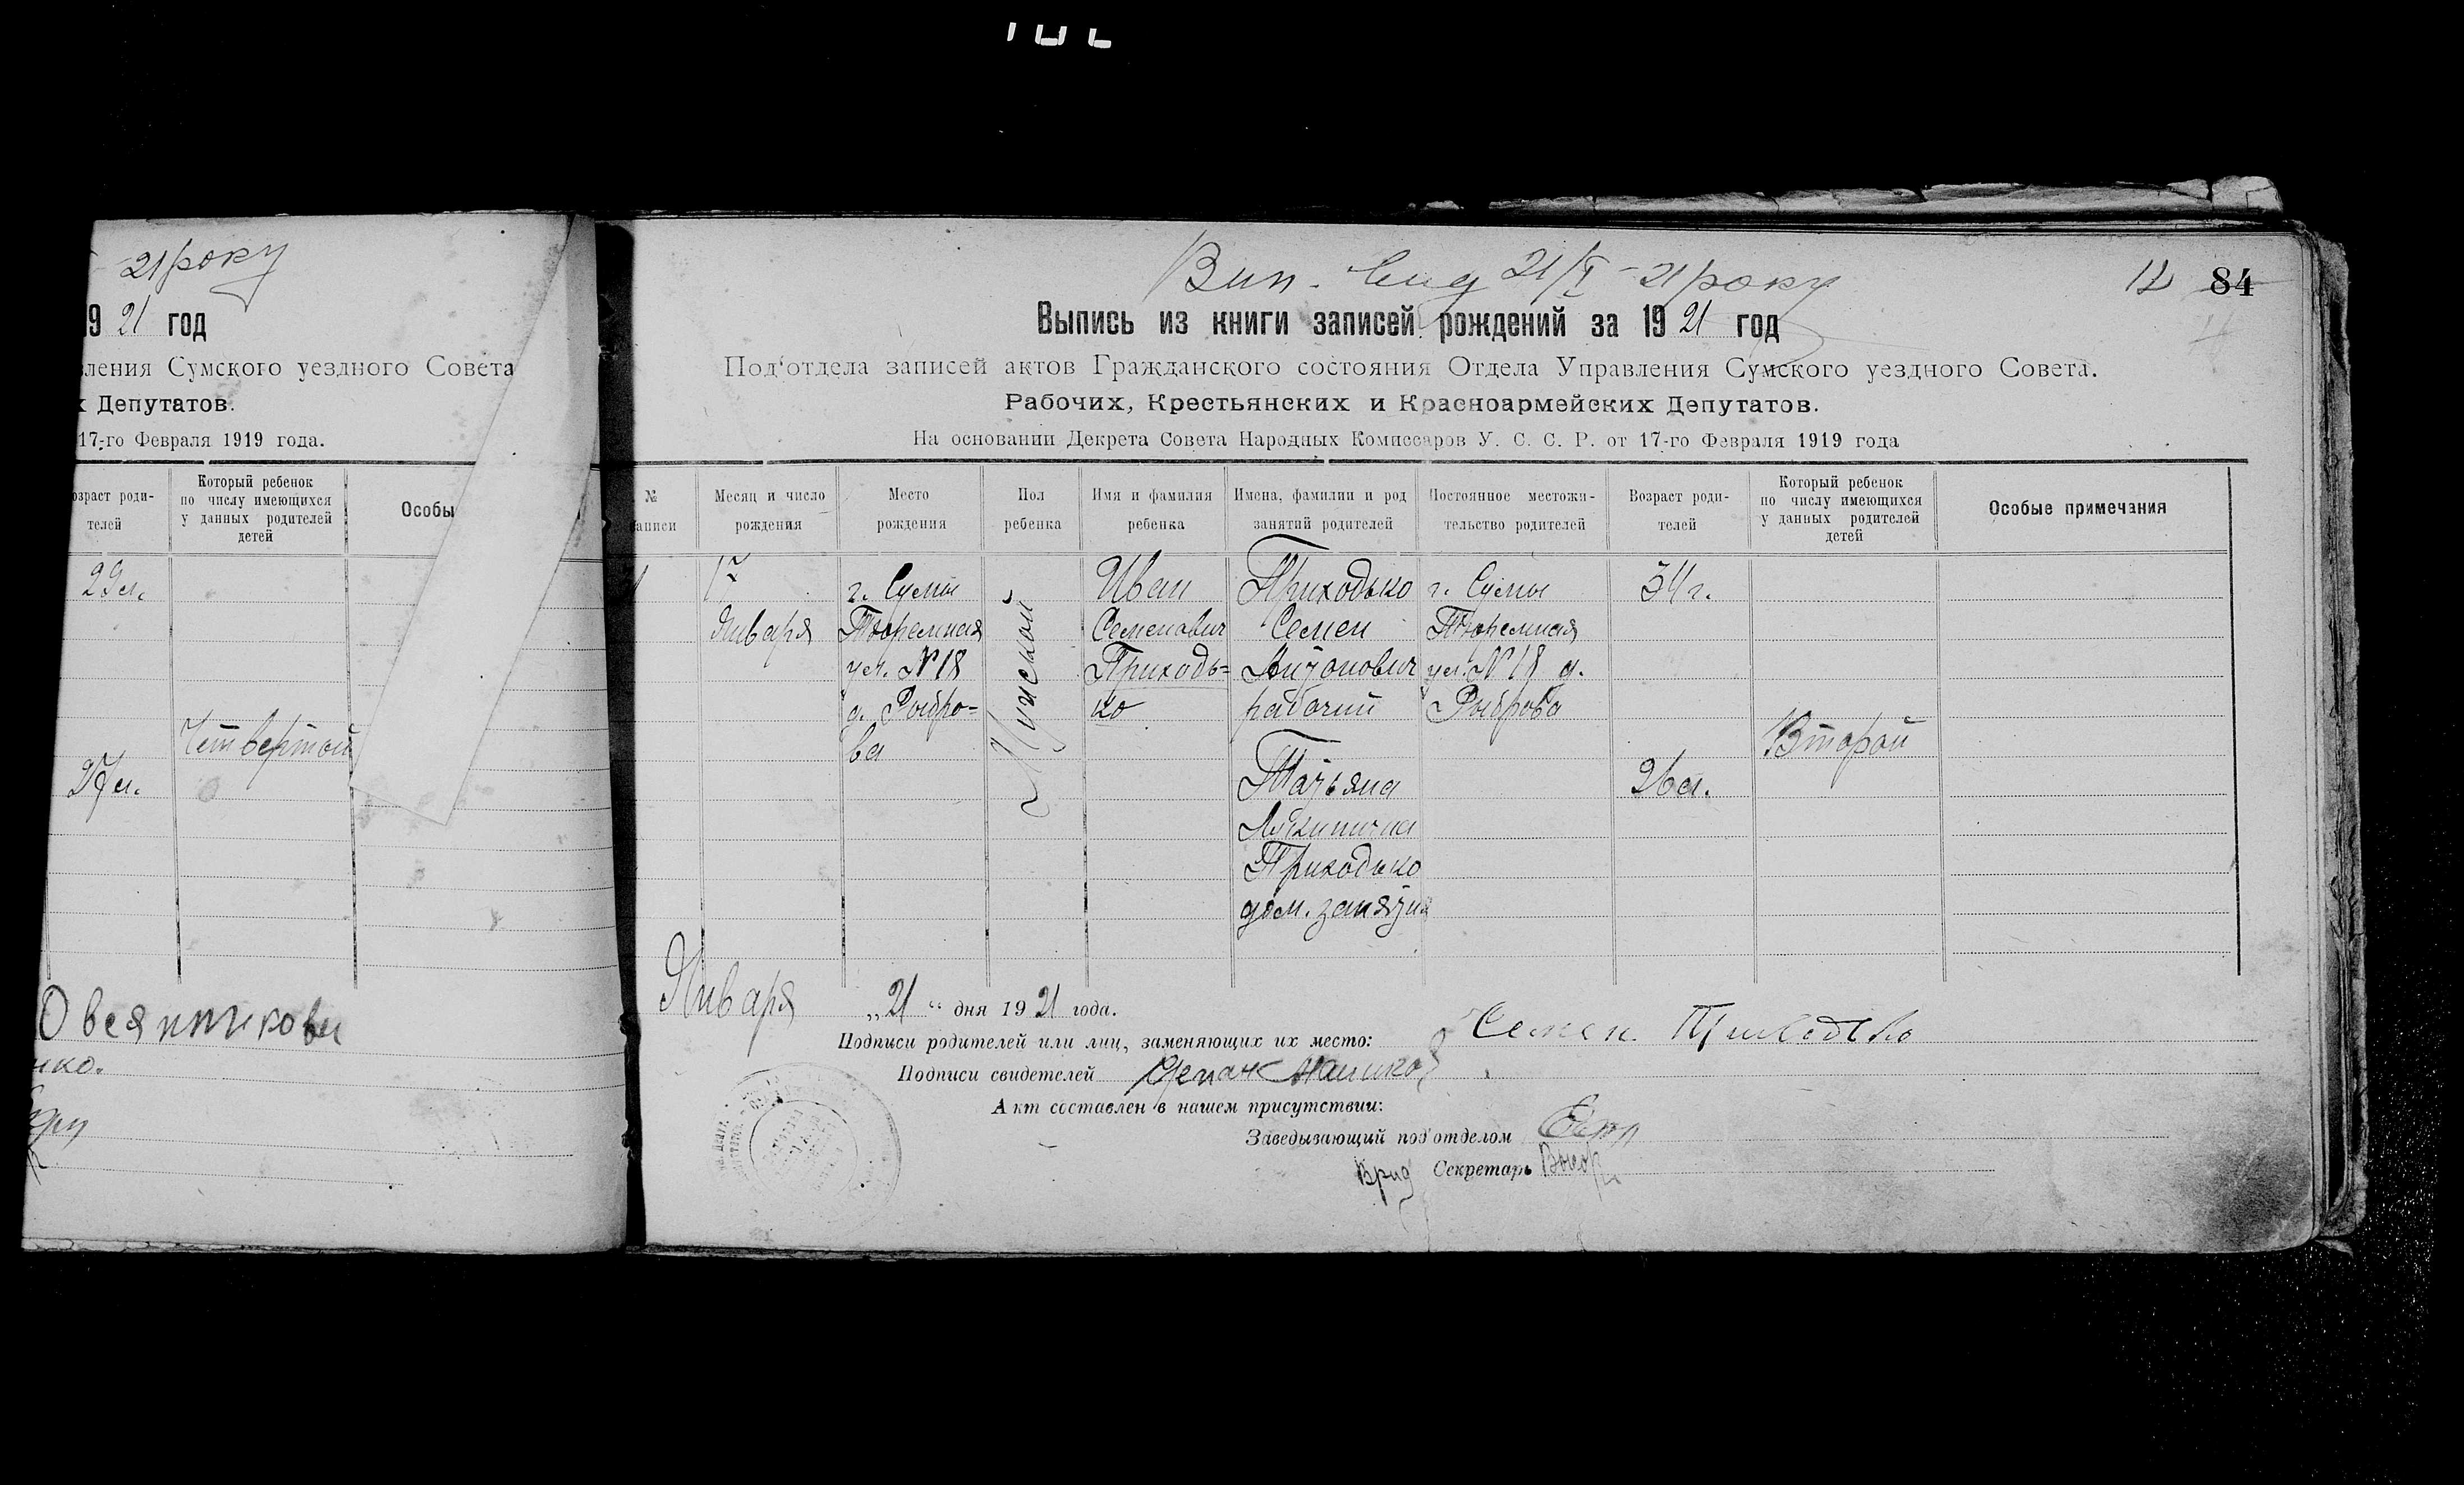 21 року
19 21 год
вления Сумского уездного Совета
х Депутатов.
17-го Февраля 1919 года.
озраст роди-
телей
Который ребенок
по числу имеющихся
у данных родителей
детей
Особы
29 л.
Четвертый
27 л.
нко.
Вип. 21/I - 21 року
12 84
Выпись из книги записей рождений за 19 21 год
Под'отдела записей актов Гражданского состояния Отдела Управления Сумского уездного Совета.
Рабочих, Крестьянских и Красноармейских Депутатов.
На основании Декрета Совета Народных Комиссаров У. С. С. Р. от 17-го Февраля 1919 года
№
записи
Месяц и число
рождения
Место
рождения
Пол
ребенка
Имя и фамилия
ребенка
Имена, фамилии и род
занятий родителей
Постоянное местожи-
тельство родителей
Возраст роди-
телей
Который ребенок
по числу имеющихся
у данных родителей
детей
Особые примечания
17
Января
г. Сумы
Тюремная
ул. № 18
д. Рыбро=
ва
Мужской
Иван
Семенович
Приходь=
ко
Приходько
Семен
Антонович
рабочий
Татьяна
Приходько
дом. занятия
г. Сумы
Тюремная
ул. № 18 д.
Рыброва
34 г.
26 л.
Второй
Января „21“ дня 19 21 года.
Подписи родителей или лиц, заменяющих их место: Семен Приходько
Подписи свидетелей Степан
Акт составлен в нашем присутствии:
Заведывающий под'отделом
Врид Секретарь